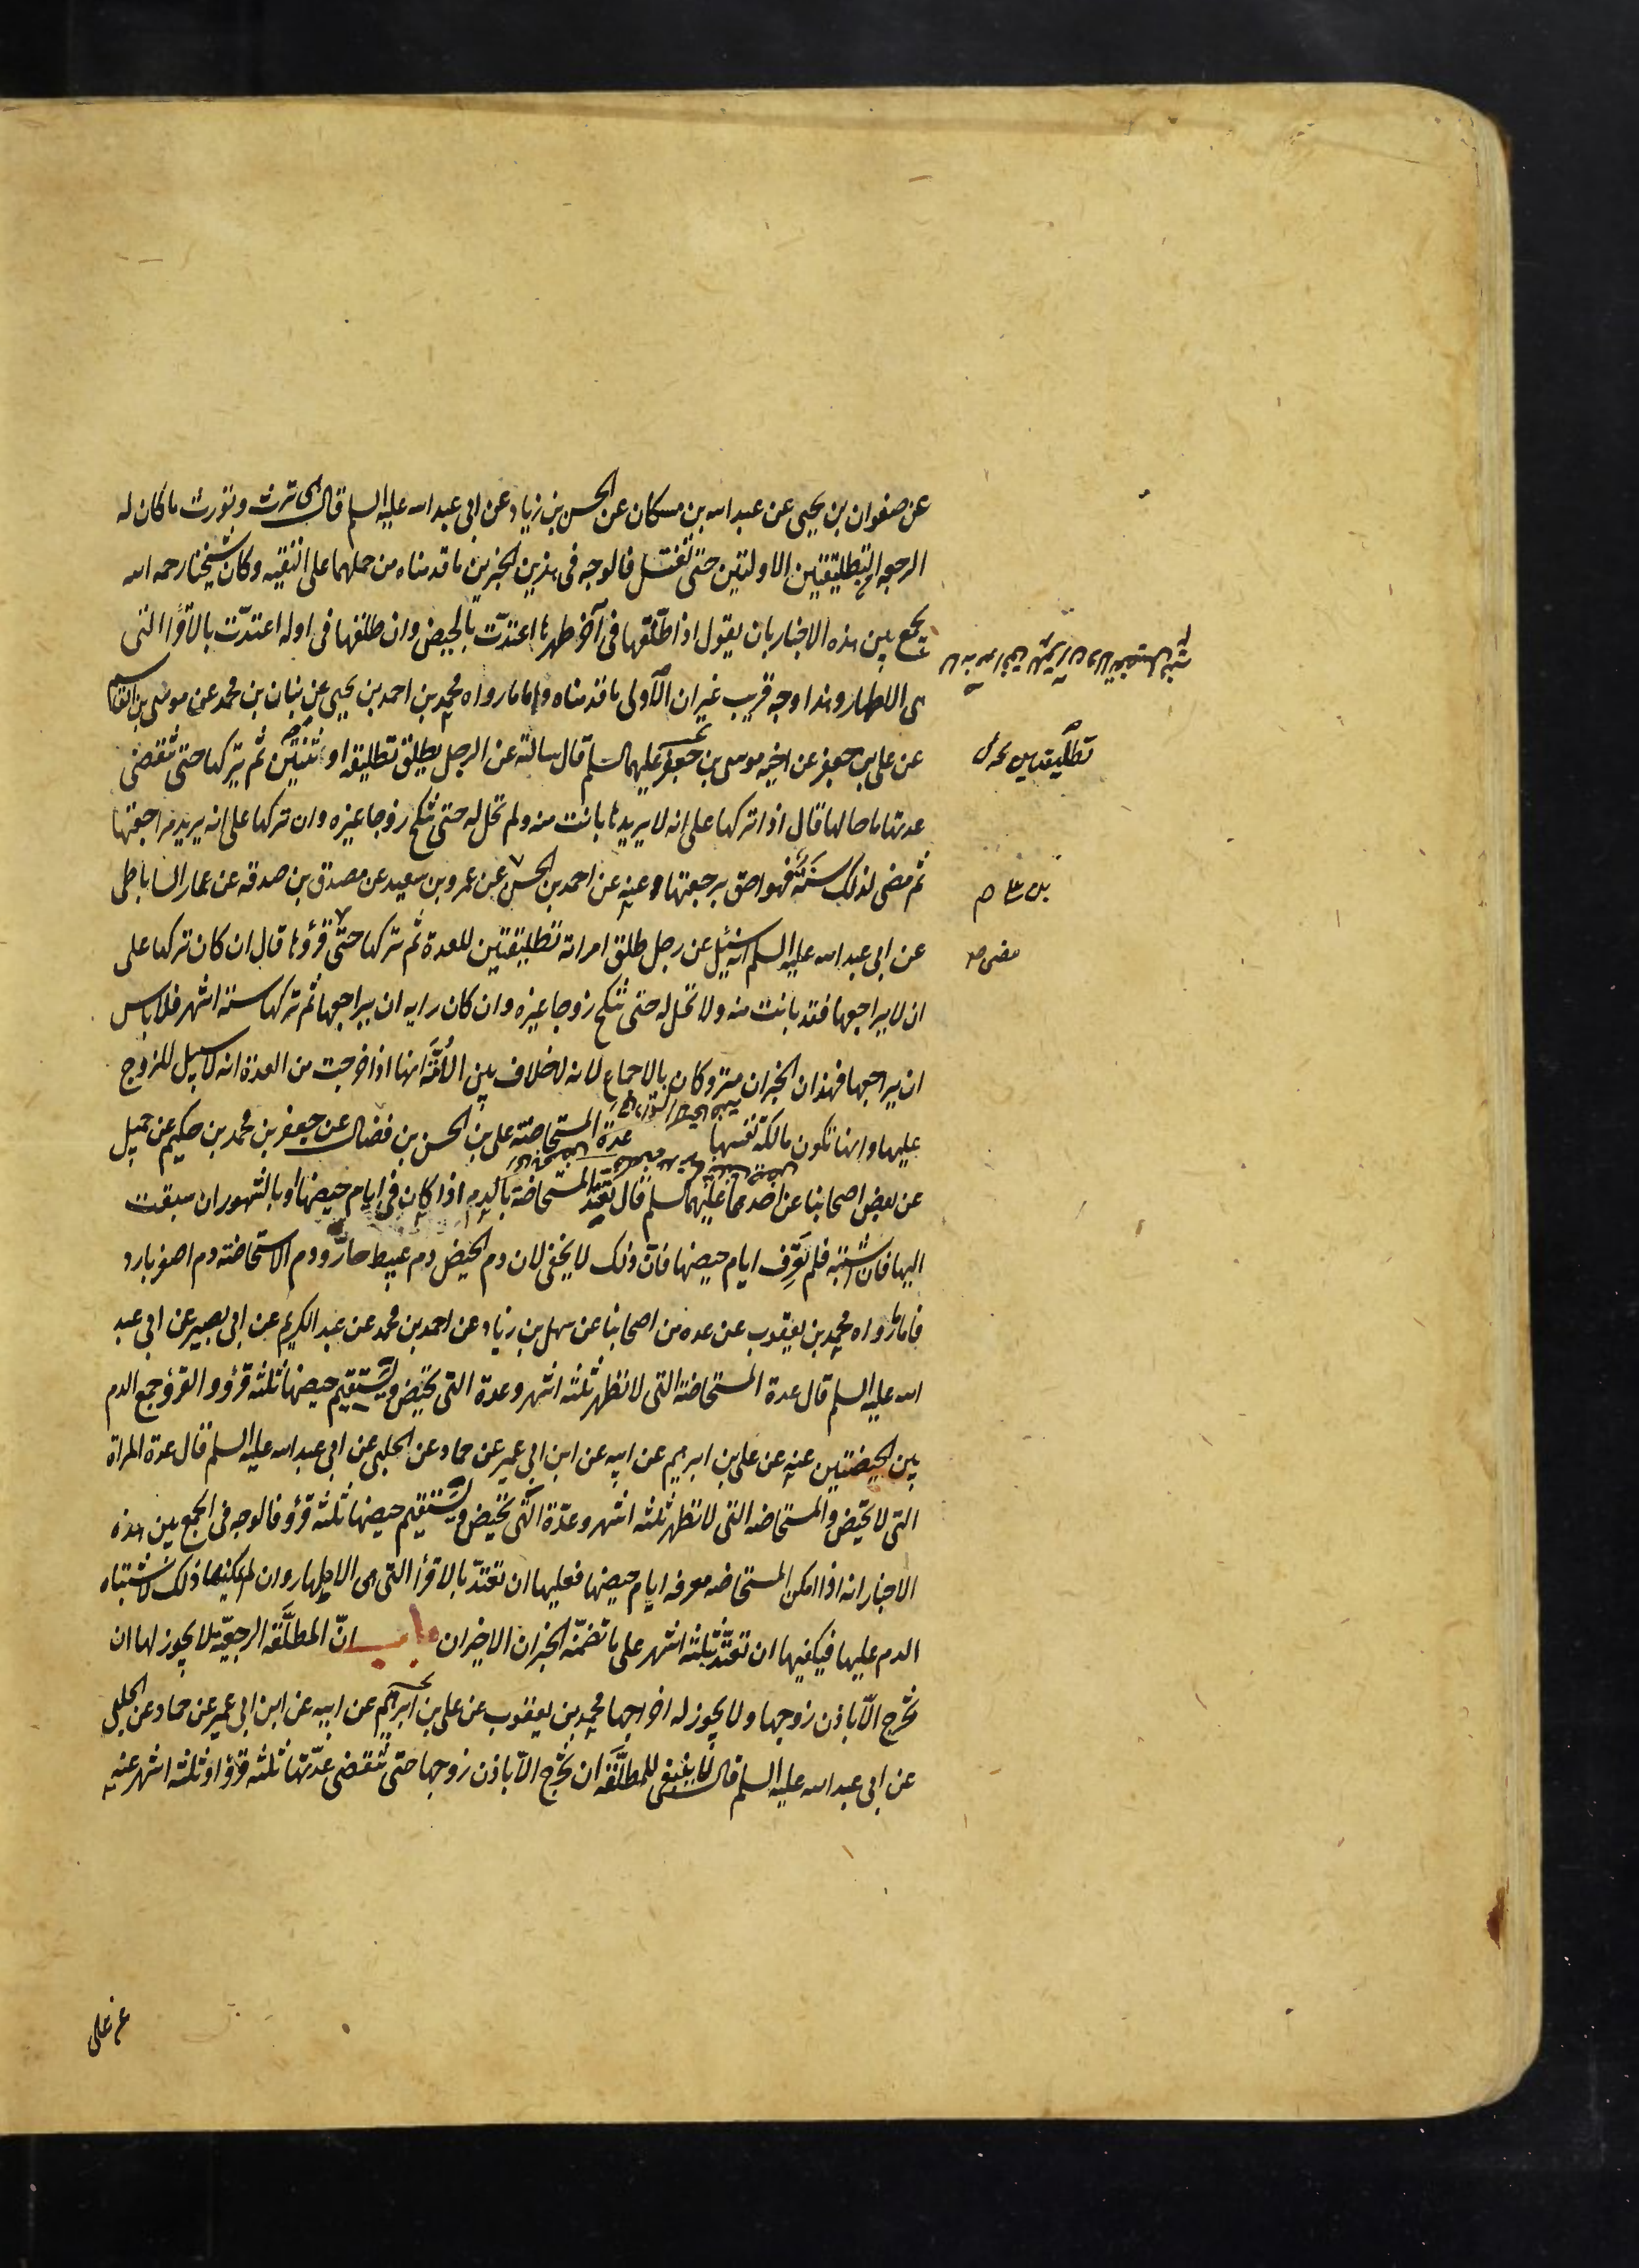 عن صفوان بن يحيى عن عبد الله بن مسكان عن الحسن بن زياد عن ابى عبد الله عليه السلم قال هى ترث وتورث ما كان له
الرجعه فى التطليقتين الاولتين حتى تغتسل فالوجه فى هذين الخبرين ما قدمناه من حملهما على التقيه وكان شيخنا رحمه الله
يجمع بين هذه الاخبار بان يقول اذا طلّقها فى آخر طهرها اعتدّت بالحيض وان طلقها فى اوله اعتدّت بالاقرأ التى
هى الاطهار وهذا وجه قريب غير ان الاولى ما قدمناه واما ما رواه محمد بن احمد بن يحيى عن بنان بن محمد عن موسى بن القاسم
عن على بن جعفر عن اخيه موسى بن جعفر عليهما السلم قال سالته عن الرجل يطلق تطليقه او ثنتين ثم يتركها حتى تنقضى
عدتها ما حالها قال اذا تركها على انه لا يريدها بانت منه ولم تحل له حتى تنكح زوجا غيره وان تركها على انه يريد مراجعتها
ثم مضى لذلك سنة فهو احق برجعتها وعنه عن احمد بن الحسن عن عمرو بن سعيد عن مصدق بن صدقه عن عمار الساباطى
عن ابى عبد الله عليه السلم انه سئل عن رجل طلق امراته تطليقتين للعدة ثم تركها حتى قرؤها قال ان كان تركها على
ان لا يراجعها فقد بانت منه ولا تحل له حتى تنكح زوجا غيره وان كان رايه ان يراجعها ثم تركها ستة اشهر فلا باس
ان يراجعها فهذان الخبران متروكان بالاجماع لانه لا خلاف بين الأمّة انها اذا خرجت من العدة انه لا سبيل للزوج
عليها وانها تكون مالكة نفسها عدة المستحاضة على بن الحسن بن فضال عن جعفر بن محمد بن حكيم عن جميل
عن بعض اصحابنا عن احدهما عليهما السلم قال تعتدّ المستحاضة بالدم اذا كان فى ايام حيضها او بالشهور ان سبقت
اليها فان اشتبه فلم تعرف ايام حيضها فان ذلك لا يخفى لان دم الحيض دم عبيط حارّ ودم الاستحاضة دم اصفر بارد
فاما ما رواه محمد بن يعقوب عن عده من اصحابنا عن سهل بن زياد عن احمد بن محمد عن عبد الكريم عن ابى بصير عن ابى عبد
الله عليه السلم قال عدة المستحاضة التى لا تطهر ثلثه اشهر وعدة التى تحيض ويستقيم حيضها ثلثه قرؤ والقرؤ جمع الدم
بين الحيضتين عنه عن على بن ابرهيم عن ابيه عن ابن ابى عمير عن حماد عن الحلبى عن ابى عبد الله عليه السلم قال عدة المراة
التى لا تحيض والمستحاضه التى لا تطهر ثلثه اشهر وعدّة التى تحيض ويستقيم حيضها ثلثه قرؤ فالوجه فى الجمع بين هذه
الاخبار انه اذا امكن المستحاضه معرفه ايام حيضها فعليها ان تعتدّ بالاقرأ التى هى الاطهار وان لم يمكنها ذلك لاشتباه
الدم عليها فيكفيها ان تعتدّ بثلثه اشهر على ما تضمّنه الخبران الاخيران باب انّ المطلّقه الرجعيّة لا يجوز لها ان
تخرج الّا باذن زوجها ولا يجوز له اخراجها محمد بن يعقوب عن على بن ابرهيم عن ابيه عن ابن ابى عمير عن حماد عن الحلبى
عن ابى عبد الله عليه السلم قال لا ينبغى للمطلّقه ان تخرج الّا باذن زوجها حتى تنقضى عدّتها ثلثه قرؤ او ثلثه اشهر عنه
تطليقتين
مضى
عن على